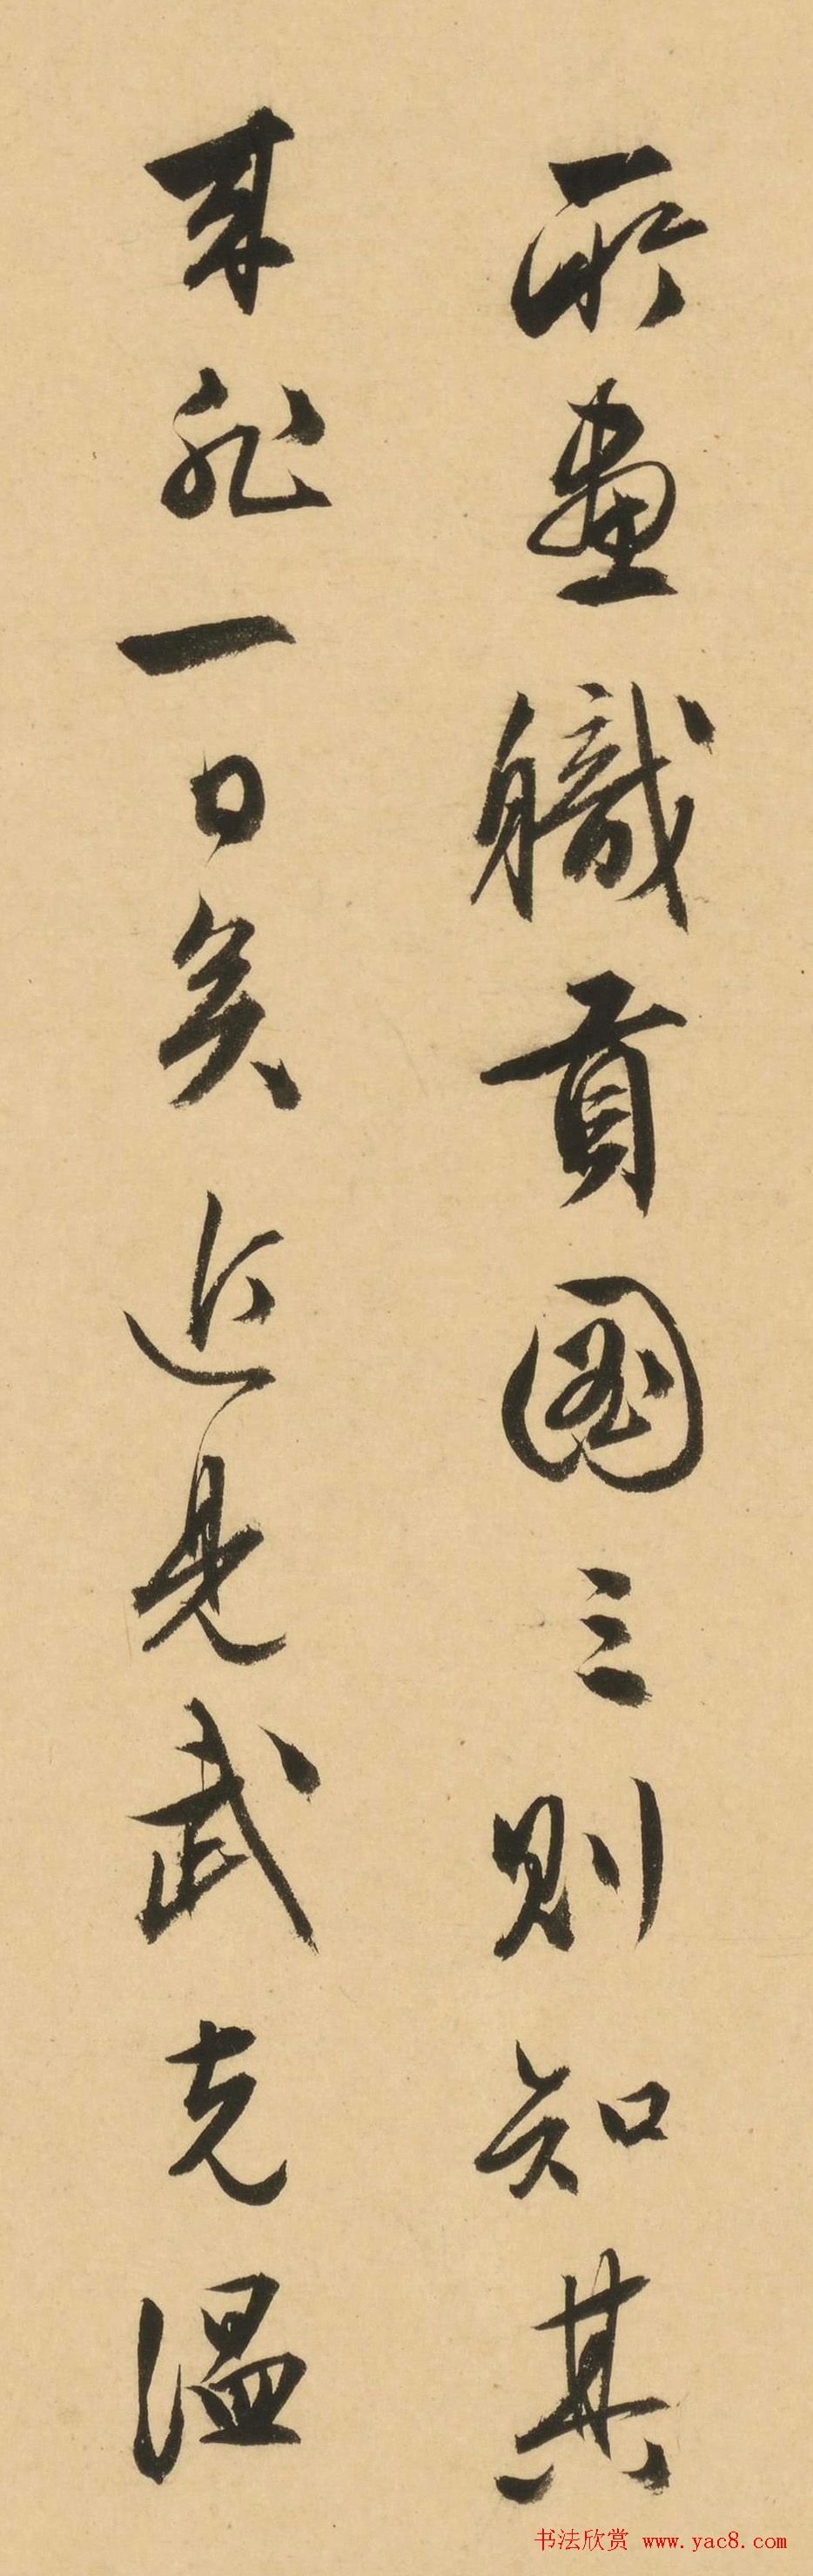 所畫職貢國三則知其
来非一日矣近見武克溫
书法欣赏 www.yac8.com